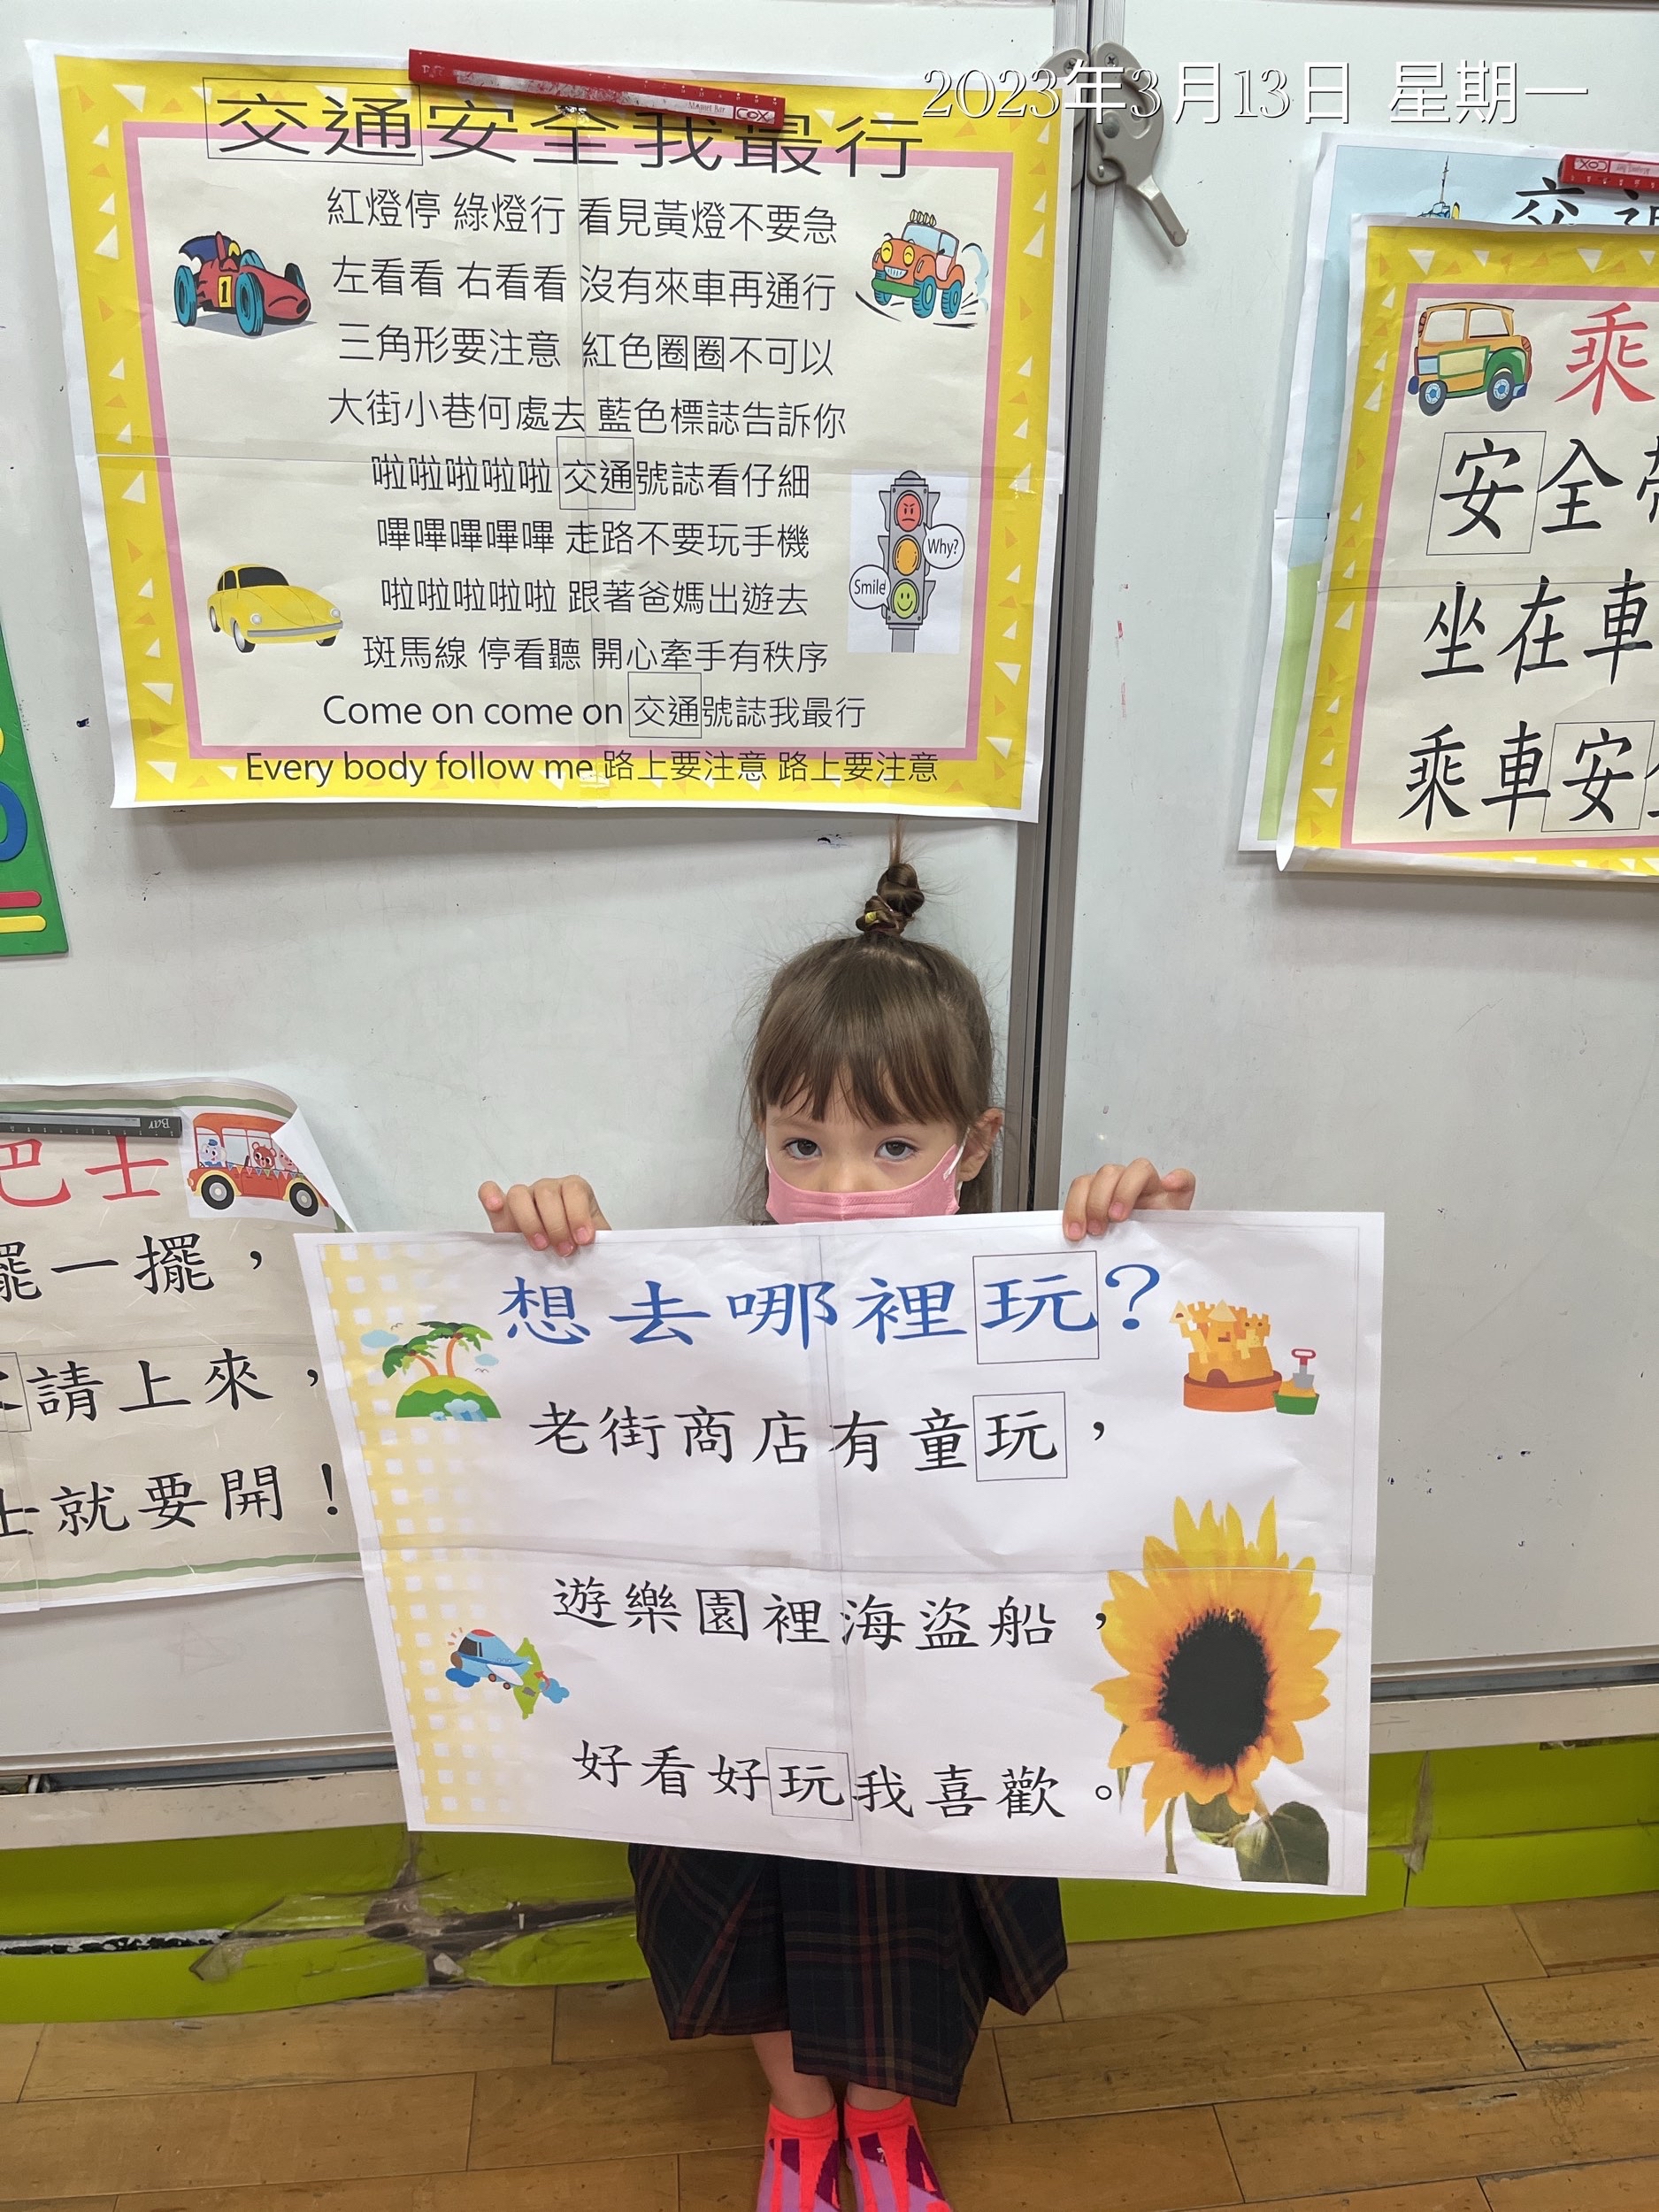 2023年3月13日 星期一
交通安全我最行
紅燈停 綠燈行 看見黃燈不要急
左看看 右看看 沒有來車再通行
三角形要注意 紅色圈圈不可以
大街小巷何處去 藍色標誌告訴你
啦啦啦啦啦 交通號誌看仔細
嗶嗶嗶嗶嗶 走路不要玩手機
啦啦啦啦啦 跟著爸媽出遊去
斑馬線 停看聽 開心牽手有秩序
Come on come on 交通號誌我最行
Every body follow me 路上要注意 路上要注意
Why?
Smile
1
Magnet Bar COX
COX
乘
安全
坐在車
乘車安
Bar
巴士
擺一擺，
請上來，
士就要開！
想去哪裡玩？
老街商店有童玩，
遊樂園裡海盜船，
好看好玩我喜歡。